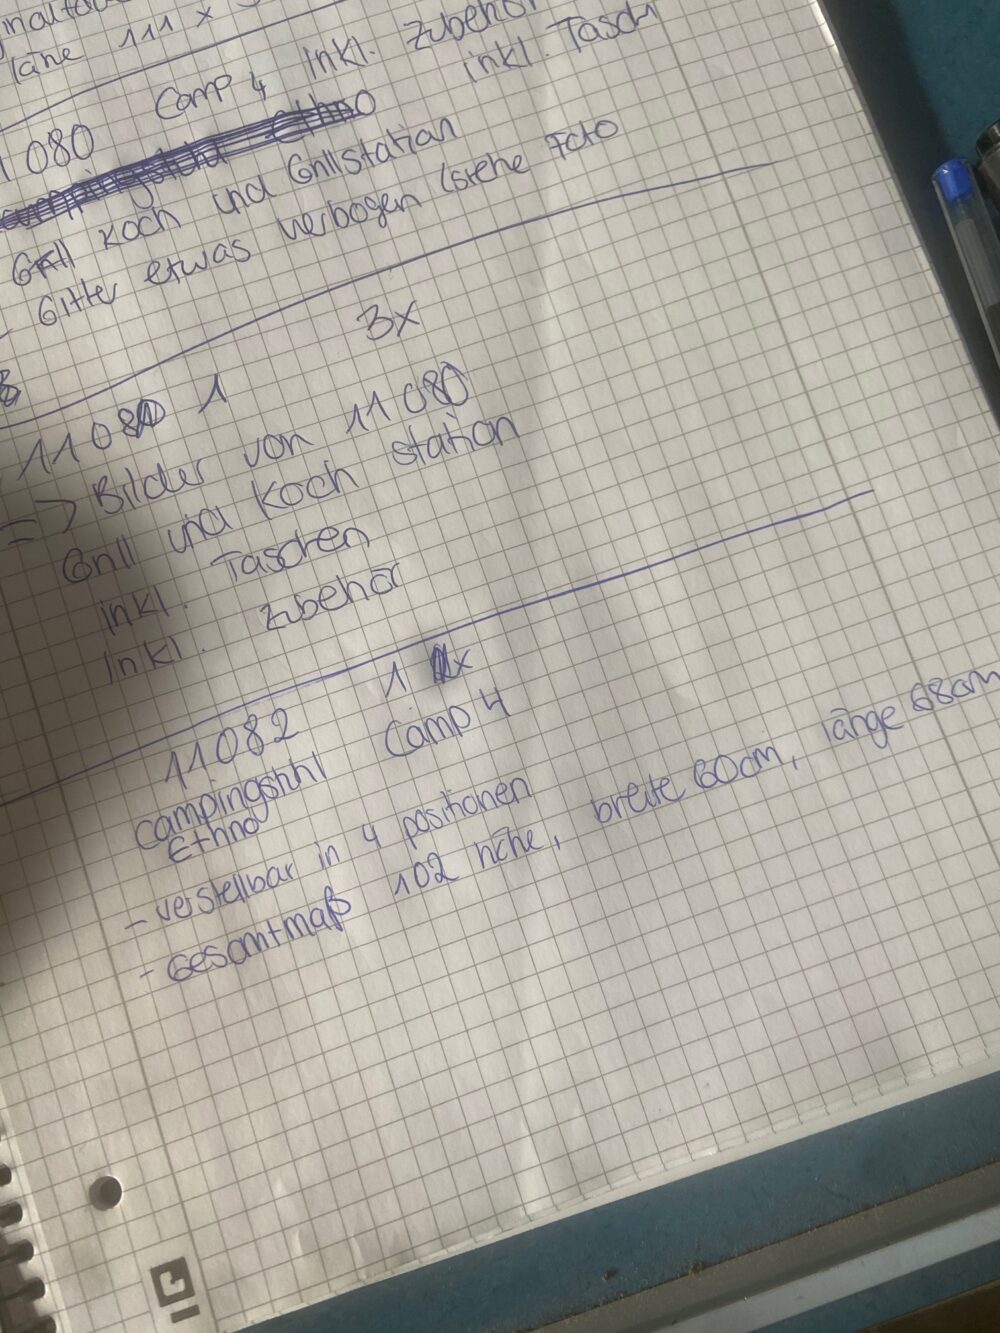 111 x
11080 Camp 4 inkl. Zubehör
inkl. Tasch
Koch und Grillstation
- Gitter etwas verbogen (siehe Foto
3x
11081
=> Bilder von 11080
Grill und Koch station
inkl. Taschen
inkl. Zubehör
11082 1 x
Campingsthl Camp 4
Ethno
- verstellbar in 4 positionen
- Gesamtmaß 102 höhe, breite 60cm, länge 68cm